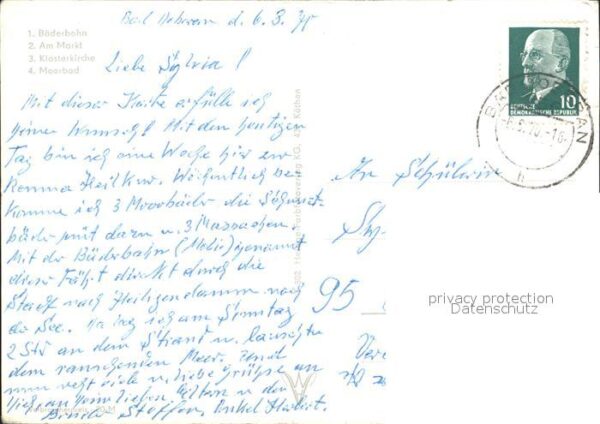 Bad Doberan d. 6.3.70
1. Bäderbahn
2. Am Markt
3. Klosterkirche
4. Moorbad
Liebe Sylvia!
Mit dieser Karte erfülle ich
Deine Wunsch! Mit den heutigen
Tag bin ich eine Woche hier zur
Rheuma Heilkur. Wöchentlich be-
komme ich 3 Moorbäder die
bäder mit dazu u. 3 Massachen.
Mit der Bäderbahn (Molli) genannt
diese Fährt direkt durch die
Stadt nach Heiligendamm nach
der See. Da ging ich am Sonntag
2 Std an dem Strand u. lauschte
dem rauschenden Meer.
nun recht viele u. liebe Grüße an
Dich an Deine lieben Eltern u. den
Bruder Steffen, Onkel Herbert.
DEUTSCHE
DEMOKRATISCHE REPUBLIK
10
BAD DOBERAN
-6.3.70-16
h
An Schülerin
Sy
95
privacy protection
Datenschutz